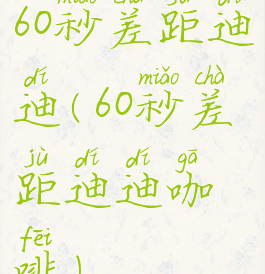 miǎo chà jù dí
60秒差距迪
dí miǎo chà
迪(60秒差
jù dí dí gā
距迪迪咖
fēi
啡)